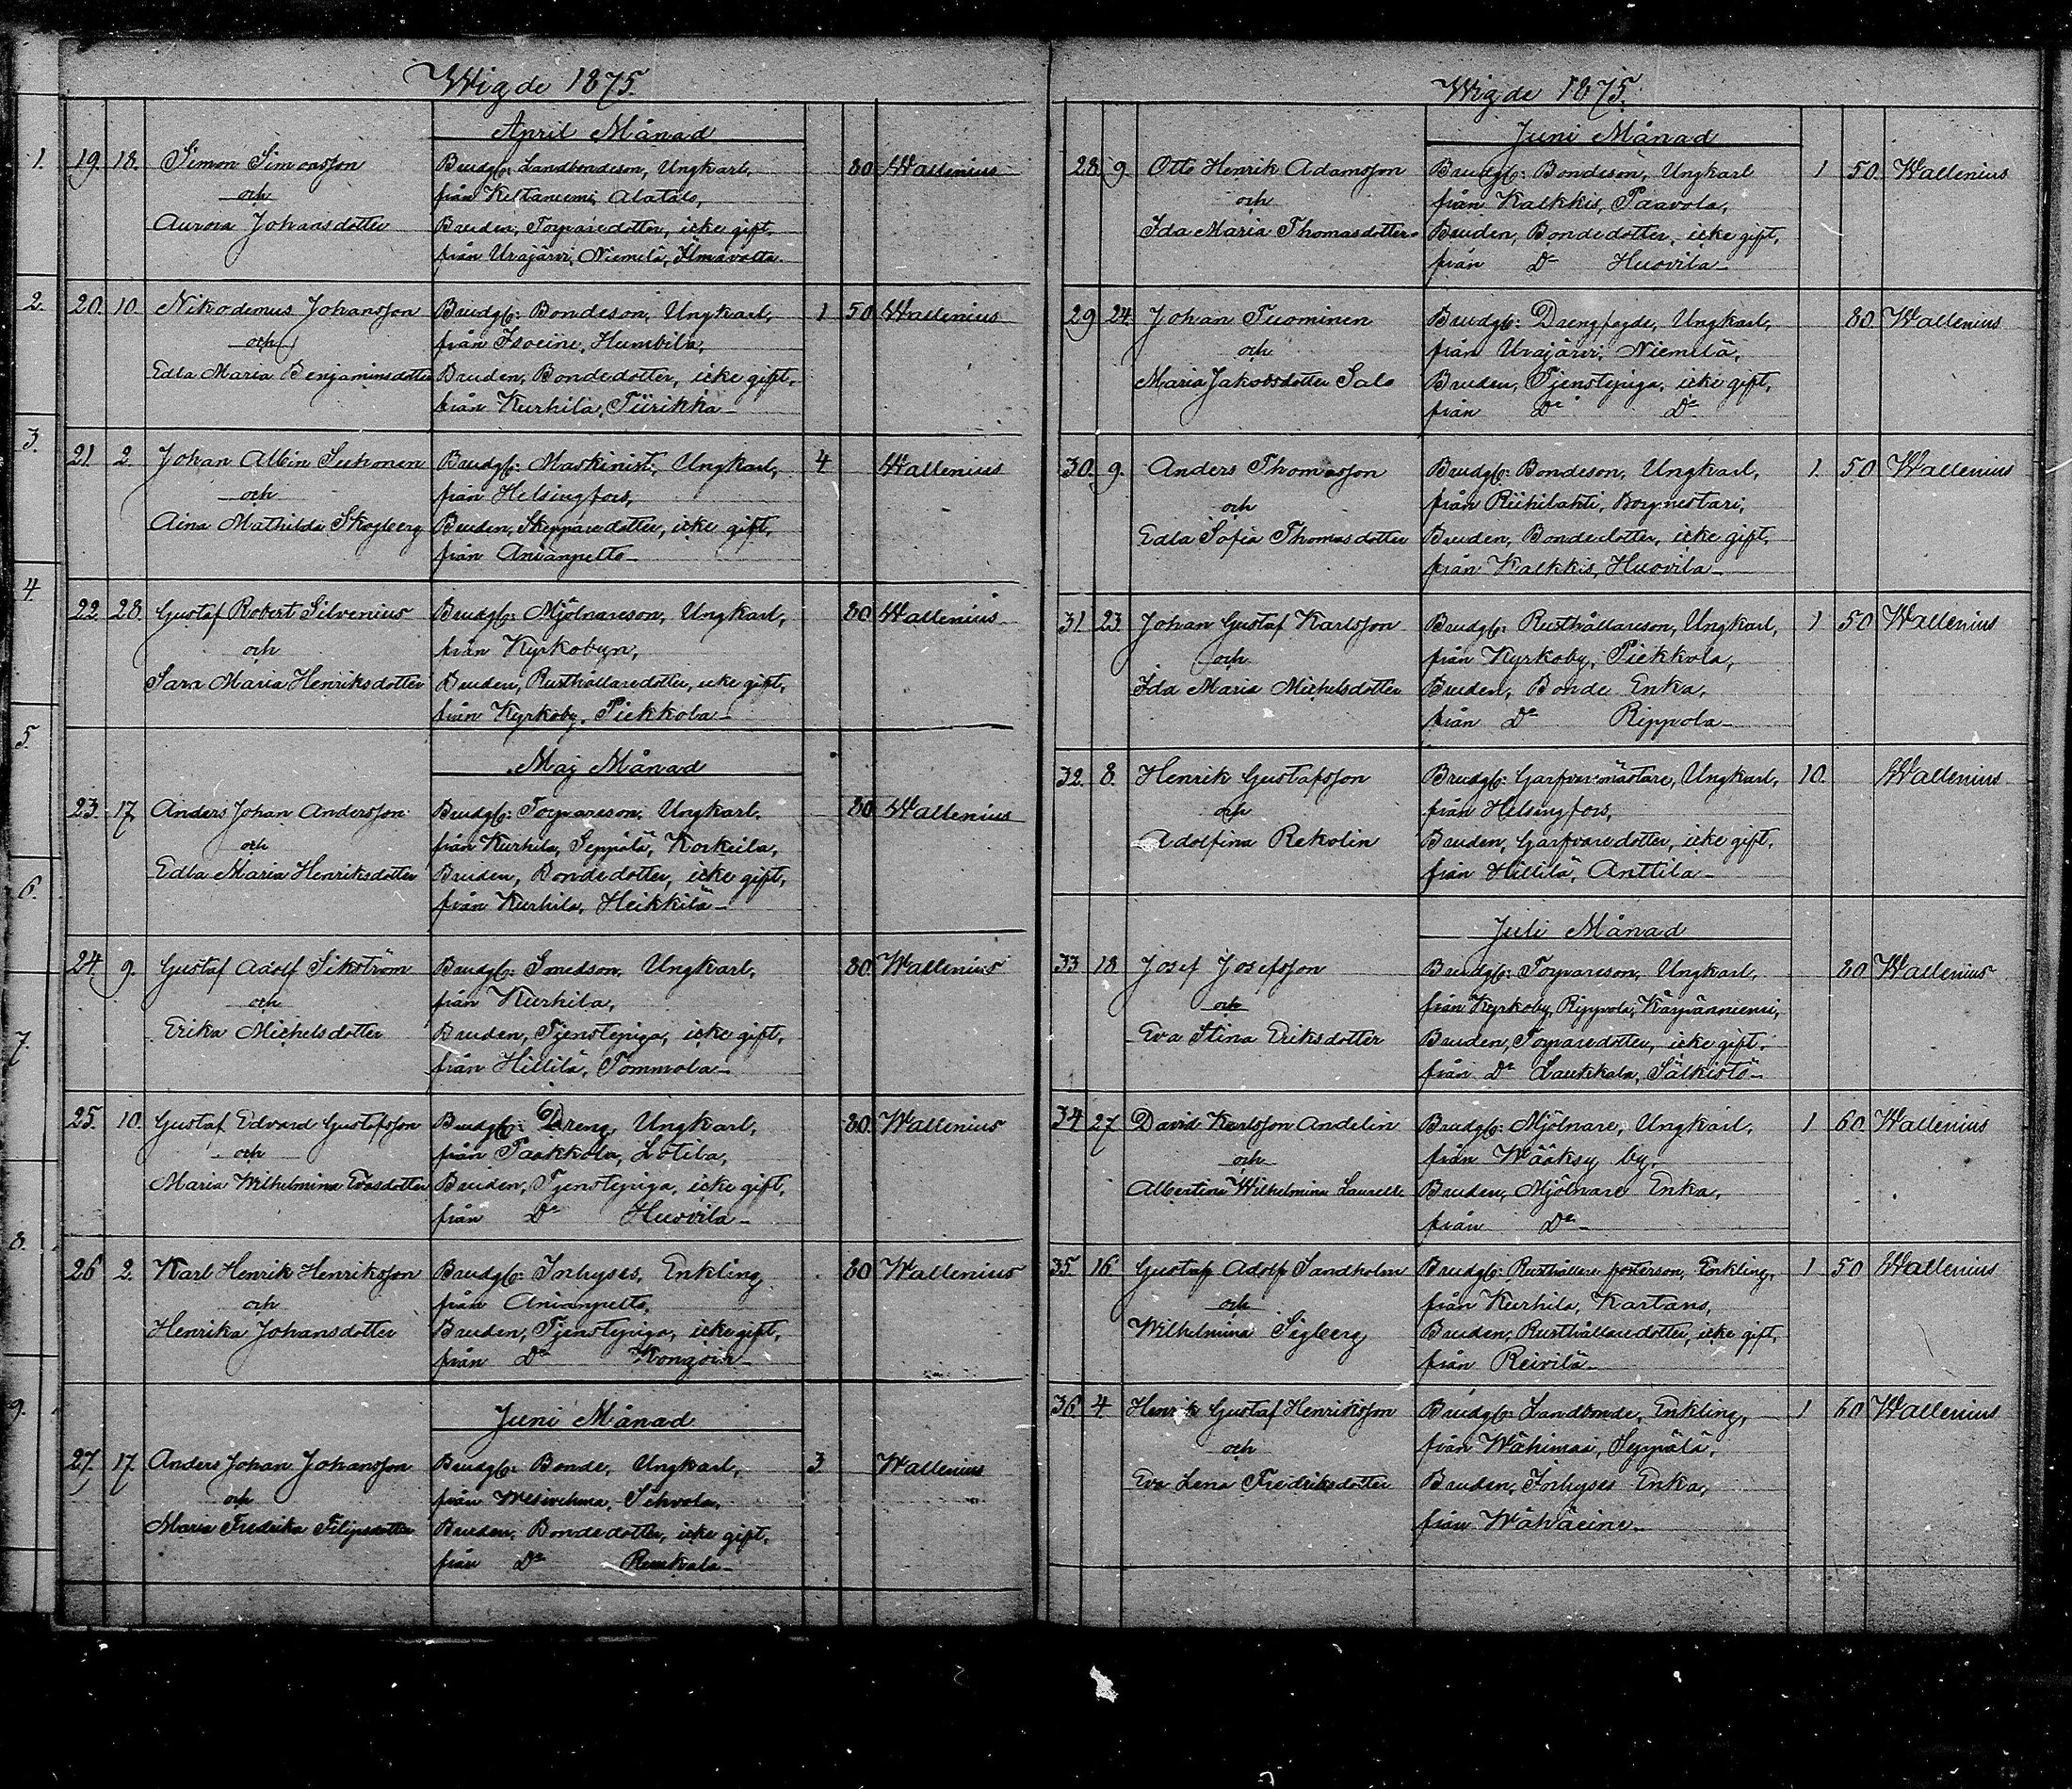 Wigde 1875.
April Månad
1. 19. 18. Simon Simonsson Brudg: Landbondeson, Ungkarl, 80 Wallenius
och från Keltaniemi, Alatalo,
Aurora Johansdotter Bruden, Torparedotter, icke gift,
från Urajärvi, Niemelä,
2. 20. 10. Nikodemus Johansson Brudg: Bondeson, Ungkarl, 1 50 Wallenius
och från Isoeine, Humbila,
Edla Maria Benjaminsdotter Bruden, Bondedotter, icke gift,
från Kurhila, Tiirikka
3. 21. 2. Johan Albin Suhonen Brudg: Maskinist, Ungkarl, 4 Wallenius
och från Helsingfors,
Aina Mathilda Skogberg Bruden, Skeppsredotter, icke gift,
från Anianpelto
4. 22. 28. Gustaf Robert Silvenius Brudg: Mjölnareson, Ungkarl, 80 Wallenius
och från Kyrkobyn,
Sara Maria Henriksdotter Bruden, Rusthållaredotter, icke gift,
från Kyrkoby, Piekkola
5. Maj Månad
23. 17. Anders Johan Andersson Brudg: Torpareson, Ungkarl, 80 Wallenius
och från Kurhila, Seppälä, Korkeila,
6. Edla Maria Henriksdotter Bruden, Bondedotter, icke gift,
från Kurhila, Heikkilä
24. 9. Gustaf Adolf Sikström Brudg: Smedson, Ungkarl, 80. Wallenius
och från Kurhila,
7. Erika Michelsdotter Bruden, Tjenstepiga, icke gift,
från Hillilä, Tommola
25. 10. Gustaf Edvard Gustafsson Brudg: Dreng, Ungkarl, 80. Wallenius
och från Paakkola, Lotila,
Maria Wilhelmina Evasdotter Bruden, Tjenstepiga, icke gift,
8. från Do Huovila
26 2. Karl Henrik Henriksson Brudg: Inhyses, Enkling, 80 Wallenius
och från Anianpelto,
Henrika Johansdotter Bruden, Tjenstepiga, icke gift,
från Do
9. Juni Månad
27. 17. Anders Johan Johansson Brudg: Bonde, Ungkarl, 3. Wallenius
och från Wesivehma, Sihvola,
Maria Fredrika Filipsdotter Bruden, Bondedotter, icke gift,
från Do
Wigde 1875.
Juni Månad
28 9. Otto Henrik Adamsson Brudg: Bondeson, Ungkarl 1 50. Wallenius
och från Kalkkis, Paavola,
Ida Maria Thomasdotter Bruden, Bondedotter, icke gift,
från Do Huovila
29 24. Johan Tuominen Brudg: Drengfogde, Ungkarl, 80. Wallenius
och från Urajärvi, Niemelä,
Maria Jakobsdotter Salo Bruden, Tjenstepiga, icke gift,
från Do Do
30. 9. Anders Thomasson Brudg: Bondeson, Ungkarl, 1. 50 Wallenius
och från Riihilahti, Borgnestari,
Edla Sofia Thomasdotter Bruden, Bondedotter, icke gift,
från Kalkkis, Huovila
31. 23. Johan Gustaf Karlsson Brudg: Rusthållareson, Ungkarl, 1 50 Wallenius
och från Kyrkoby, Piekkola,
Ida Maria Michelsdotter Bruden, Bonde Enka,
från Do Rippola
32. 8. Henrik Gustafsson Brudg: Garfvaremästare, Ungkarl, 10. Wallenius
och från Helsingfors,
Adolfina Rekolin Bruden, Garfvaredotter, icke gift,
från Hillilä, Anttila
Juli Månad
33 18 Josef Josefsson Brudg: Torpareson, Ungkarl, 80 Wallenius
och från Kyrkoby, Rippola, Kärpänniemi,
Eva Stina Eriksdotter Bruden, Torparedotter, icke gift,
från Do Laukkala, Sälkistö
34 27 David Karlsson Andelin Brudg: Mjölnare, Ungkarl, 1 60. Wallenius
och från Wääksy by,
Albertina Wilhelmina Laurell Bruden, Mjölnare Enka,
från Do
35. 16. Gustaf Adolf Sandholm Brudg: Rusthållare fosterson, Enkling, 1 50 Wallenius
och från Kurhila, Kartans,
Wilhelmina Sigberg Bruden, Rusthållaredotter, icke gift,
från Reivilä
36. 4 Henrik Gustaf Henriksson Brudg: Landbonde, Enkling, 1 60 Wallenius
och från Wähimaa, Seppälä,
Eva Lena Fredriksdotter Bruden, Inhyses Enka,
från Wähäeine